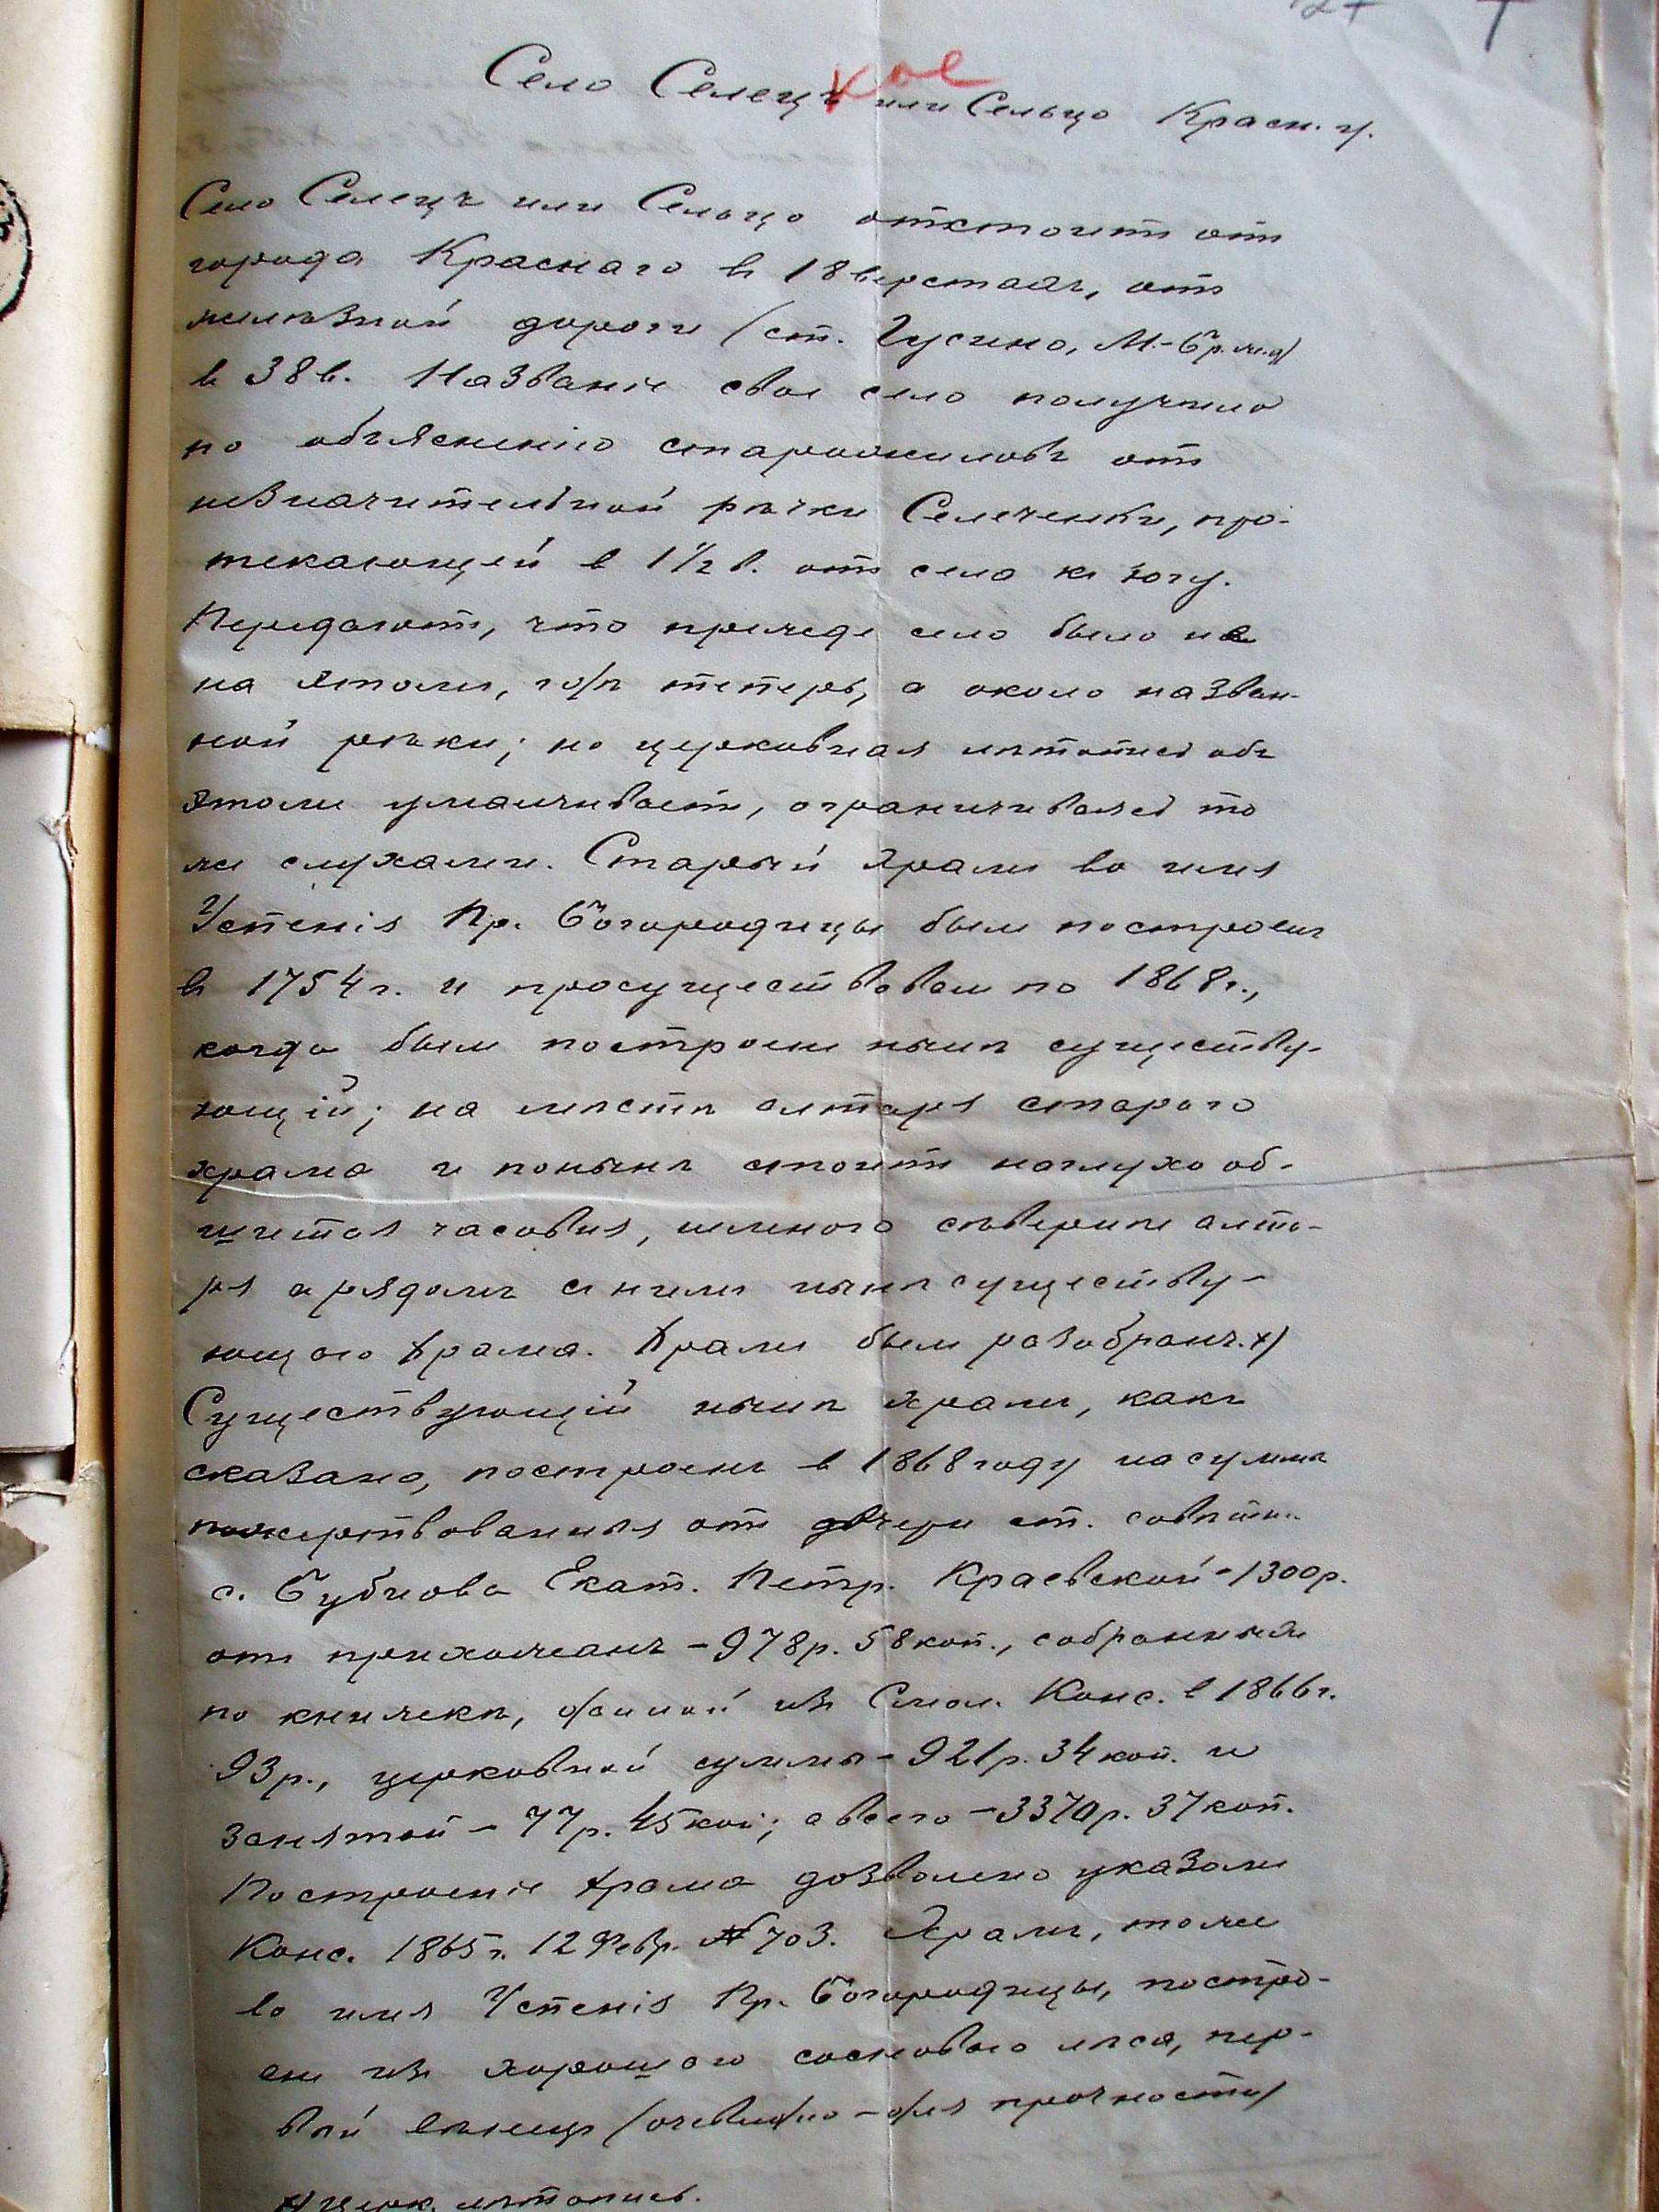 Село Селецъ кое или Сельцо Красн. у.
Село Селецъ или Сельцо отстоитъ отъ
города Краснаго въ 18 верстахъ, отъ
желѣзной дороги (ст. Гусино, М.-Бр. ж. д)
въ 38 в. Названіе свое село получило
по объясненію старожиловъ отъ
незначительной рѣчки Селеченки, про-
текающей в 1 1/2 в. отъ села къ югу.
Передаютъ, что прежде село было не
на этомъ, гдѣ теперь, а около назван-
ной рѣки; но церковная лѣтопись объ
этомъ умалчиваетъ, ограничиваясь то
же слухами. Старый храмъ во имя
Успенія Пр. Богородицы былъ построенъ
въ 1754 г. и просуществовалъ по 1868 г.,
когда былъ построенъ нынѣ существу-
ющій; на мѣстѣ алтаря стараго
храма и понынѣ стоитъ наглухо об-
шитая часовня, немного сѣвернѣе алта-
ря и рядомъ съ нимъ нынѣ существу-
ющаго храма. Храмъ былъ разобранъ. х)
Существующій нынѣ храмъ, какъ
сказано, построенъ в 1868 году на суммы
пожертвованныя отъ дочери ст. совѣтн.
с. Бубнова Екат. Петр. Краевской - 1300 р.
отъ прихожанъ - 978 р. 58 коп., собранныя
по книжкѣ, данной изъ Смол. Конс. в 1866 г.
93 р., церковной суммы - 921 р. 34 коп. и
занятой - 77 р. 45 коп; а всего - 3370 р. 37 коп.
Построеніе храма дозволено указомъ
Конс. 1865 г. 12 Февр. № 703. Храмъ, тоже
во имя Успенія Пр. Богородицы, постро-
енъ изъ хорошаго сосноваго лѣса, пер-
вый вѣнецъ (очевидно - для прочности)
х) Церк. лѣтопись.